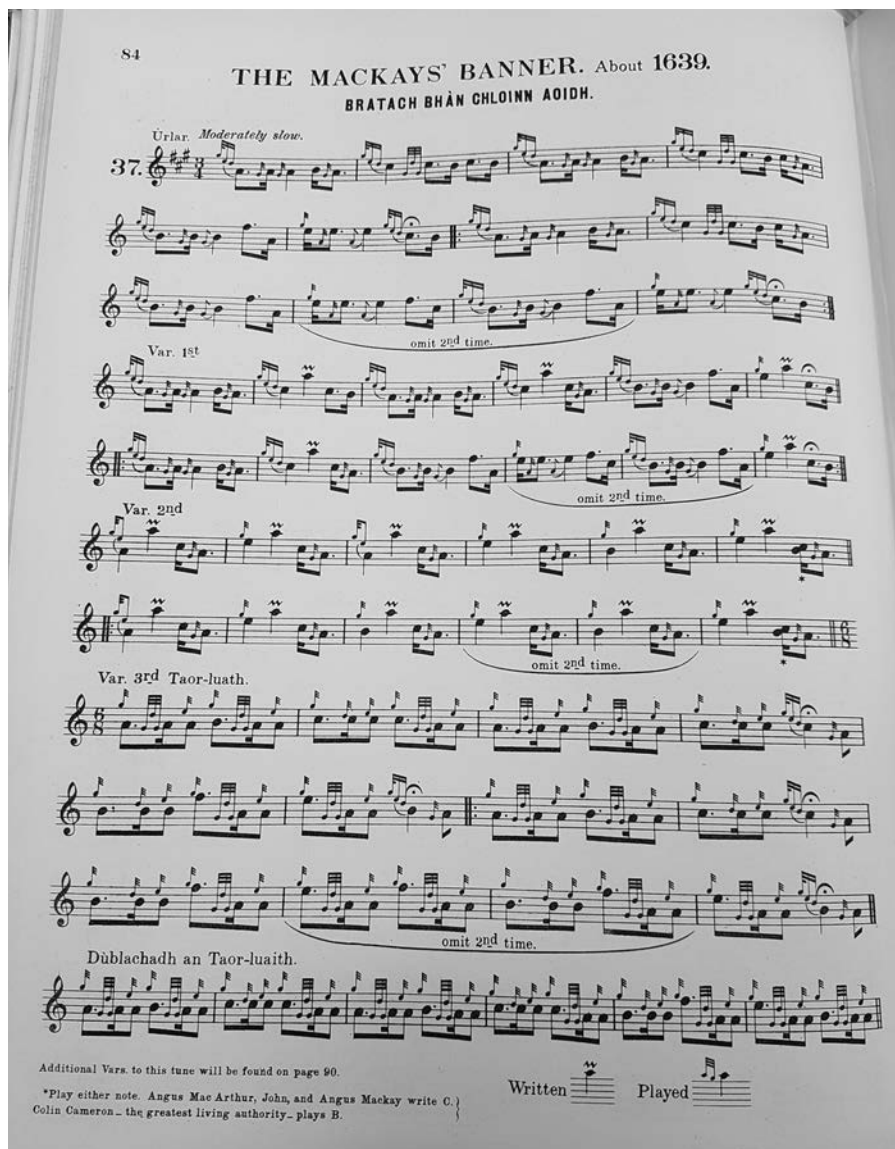 84
THE MACKAYS' BANNER. About 1639.
BRATACH BHÀN CHLOINN AOIDH.
Ùrlar. Moderately slow.
37.
3
4
omit 2nd time.
Var. 1st
omit 2nd time.
Var. 2nd
*
omit 2nd time.
*
6
8
Var. 3rd Taor-luath.
6
8
omit 2nd time.
Dùblachadh an Taor-luaith.
Additional Vars. to this tune will be found on page 90.
Written Played
*Play either note. Angus Mac Arthur, John, and Angus Mackay write C.}
Colin Cameron _ the greatest living authority _ plays B.